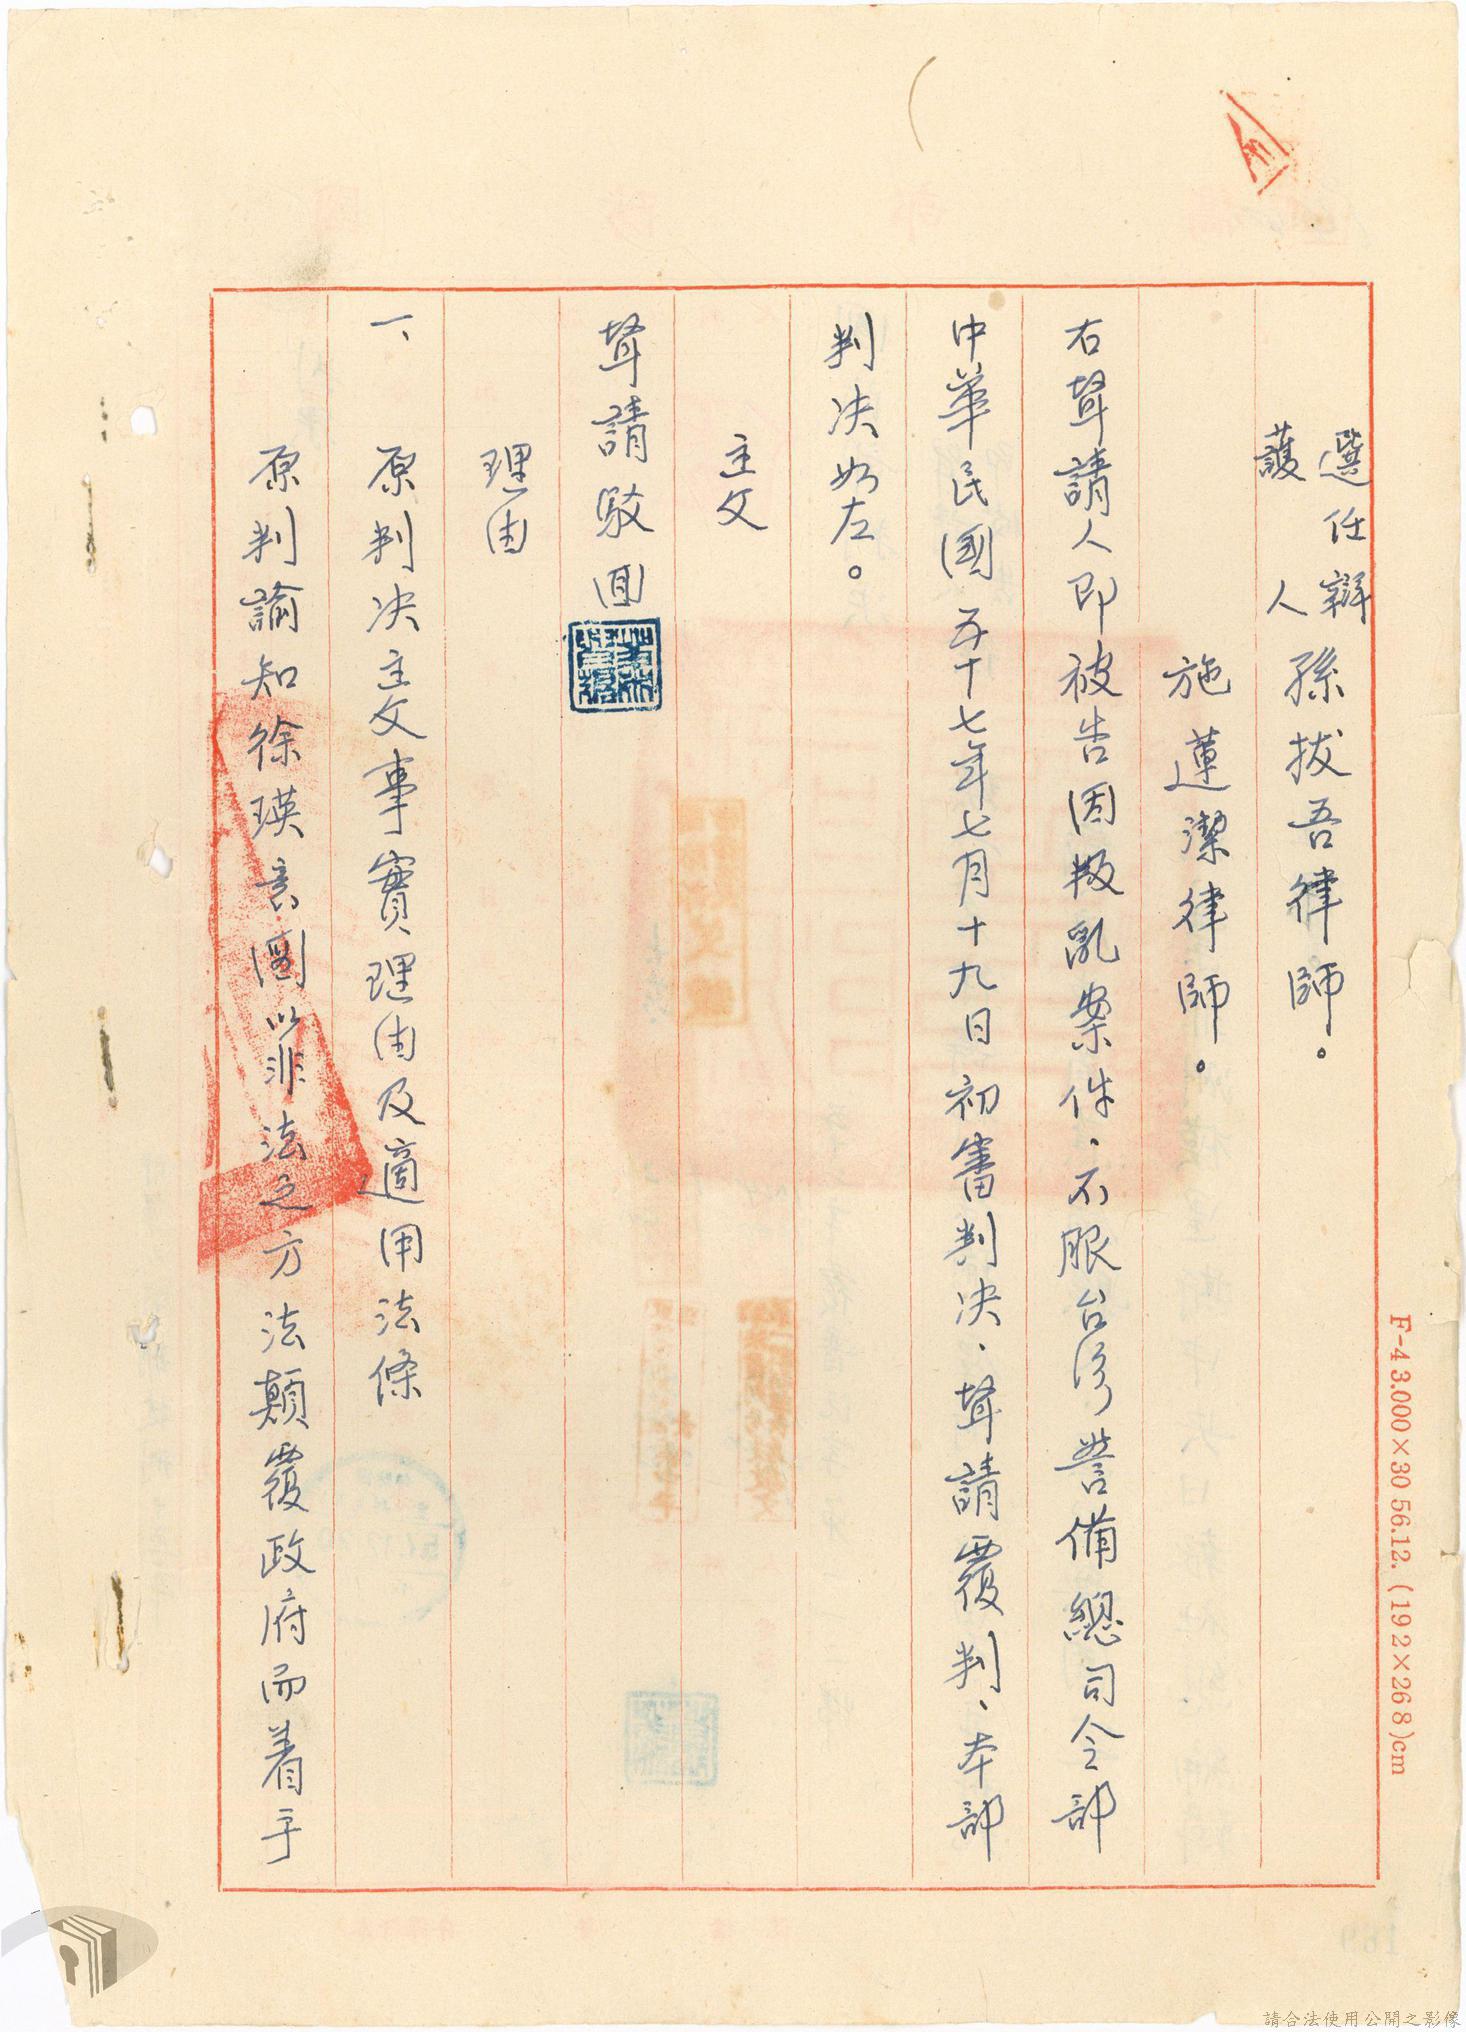 選任辯護人　孫拔吾律師。
施蓮潔律師。
右聲請人即被告因叛亂案件、不服台湾警備總司令部
中華民國五十七年七月十九日初審判决、聲請覆判、本部
判决如左。
主文
聲請駁回
理由
一、原判决主文事實理由及適用法條
原判諭知徐瑛意圖以非法之方法顛覆政府而着手
F-43.000×30 56.12. (192×268)cm
請合法使用公開之影像